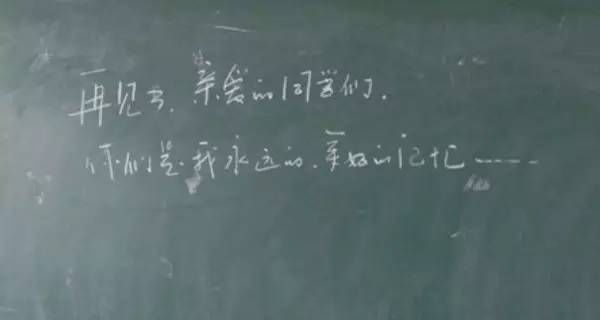 再见了，亲爱的同学们，
你们是我永远的，美好的记忆……